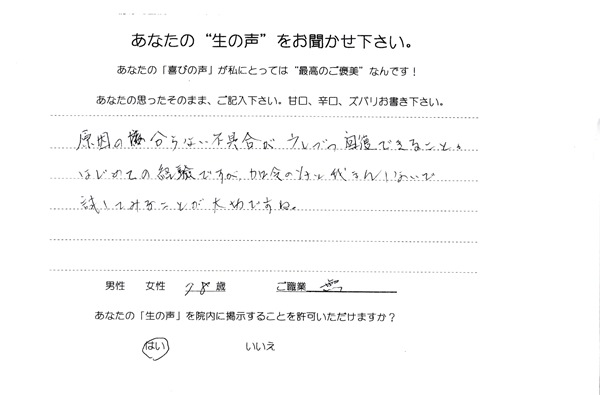 あなたの “生の声” をお聞かせ下さい。
あなたの「喜びの声」が私にとっては“最高のご褒美”なんです！
あなたの思ったそのまま、ご記入下さい。甘口、辛口、ズバリお書き下さい。
原因の分らない不具合が少しづつ回復できること、
はじめての経験ですが、
試してみることが大切ですね。
男性 女性 78歳 ご職業
あなたの「生の声」を院内に掲示することを許可いただけますか？
はい いいえ